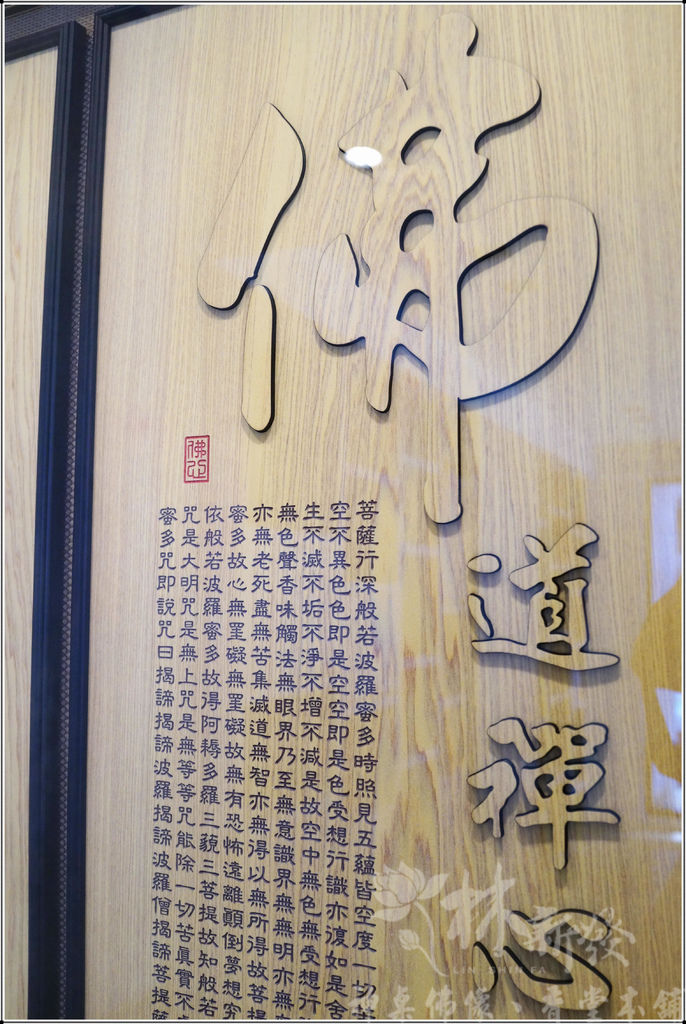 佛
道禪心
菩薩行深般若波羅蜜多時照見五蘊皆空度一切苦
空不異色色即是空空即是色受想行識亦復如是舍
生不滅不垢不淨不增不減是故空中無色無受想行
無色聲香味觸法無眼界乃至無意識界無無明亦無
亦無老死盡無苦集滅道無智亦無得以無所得故菩提
蜜多故心無罣礙無罣礙故無有恐怖遠離顛倒夢想究
依般若波羅蜜多故得阿耨多羅三藐三菩提故知般若
咒是大明咒是無上咒是無等等咒能除一切苦真實不虛
蜜多咒即說咒曰揭諦揭諦波羅揭諦波羅僧揭諦菩提薩
佛心
林新發
LIN SHIN FA
神桌佛像、香堂本舖